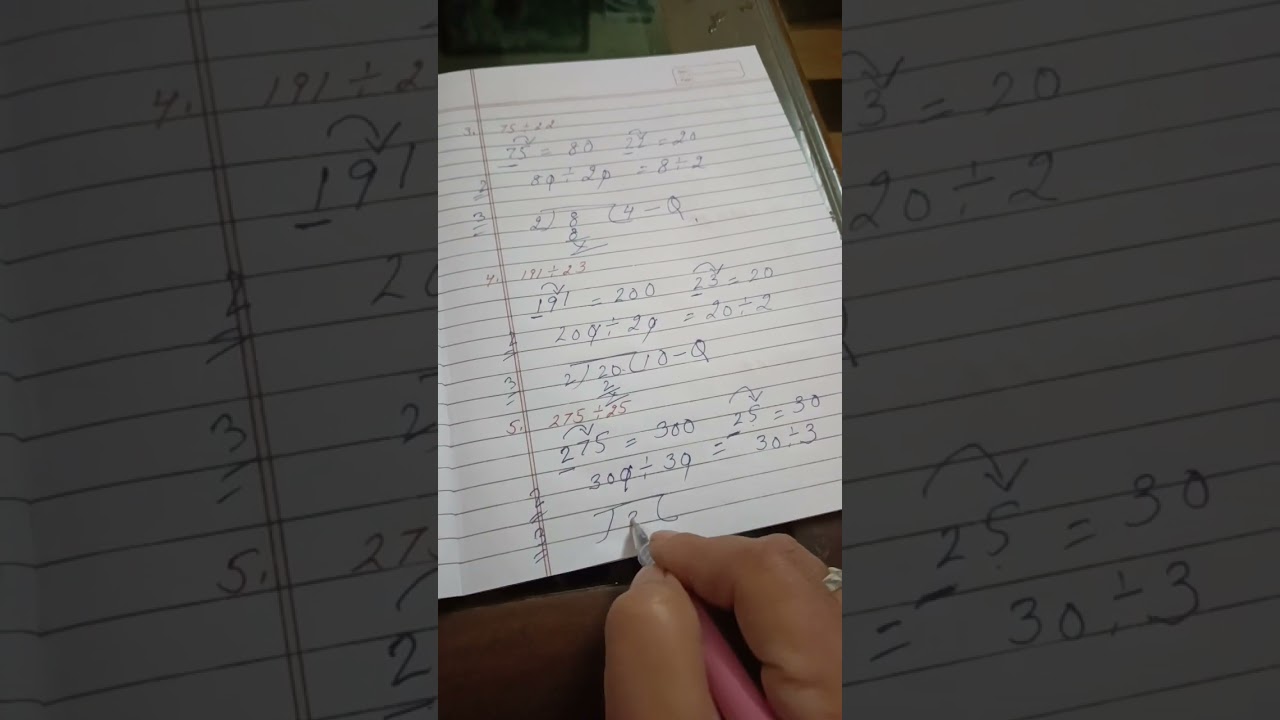 3. 75÷22
75 = 80 22 = 20
2 80÷20 = 8÷2
3 2) 8 (4 - Q
8
4. 191÷23
191 = 200 23 = 20
2 200÷20 = 20÷2
3 2) 20 (10 - Q
2
5. 275÷25
275 = 300 25 = 30
2 300÷30 = 30÷3
3 ) 3 (